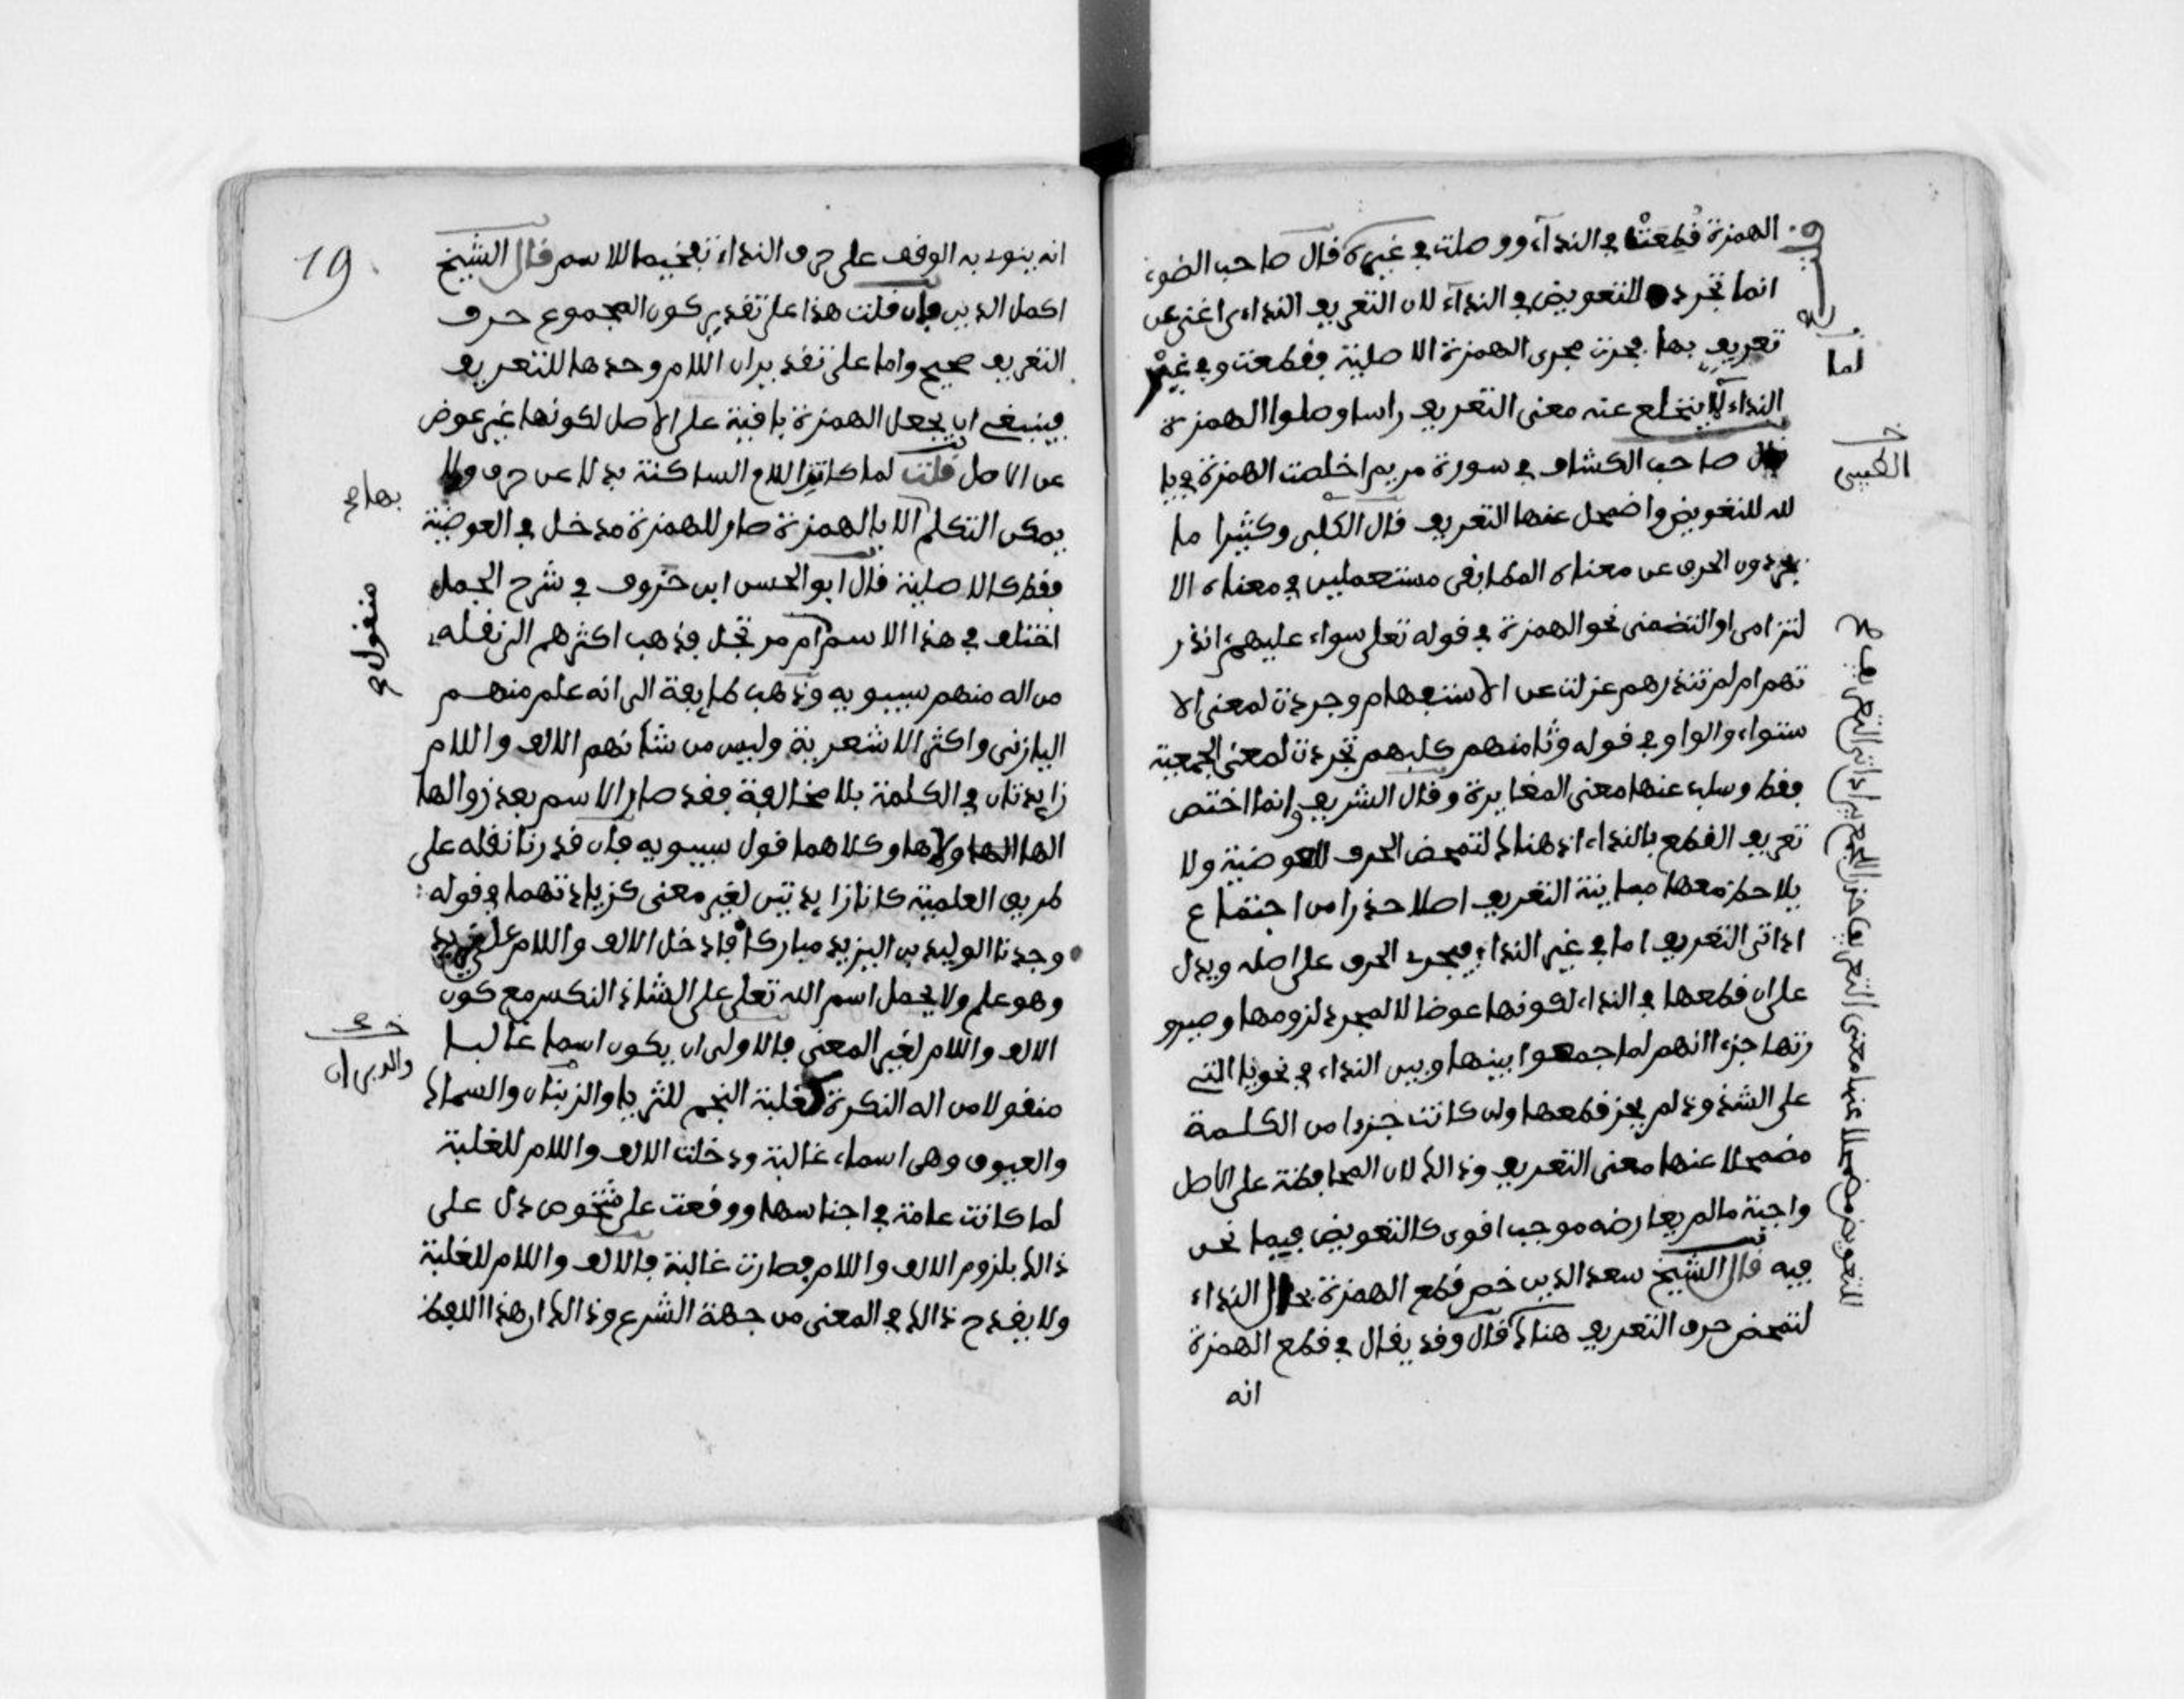 الهمزة قطعت في النداء ووصلت في غيره قال صاحب الضوء
انما تجرد للتعويض في النداء لان التعريف النداءي اغنى عن
تعريف بها فجرت مجرى الهمزة الاصلية فقطعت وفي غير
النداء لا ينخلع عنه معنى التعريف راسا وصلوا الهمزة
قال صاحب الكشاف في سورة مريم اخلصت الهمزة في يا
لله للتعويض واضمحل عنها التعريف قال وكثيرا ما
يجردون الحرف عن معناه المطابقى مستعملين في معناه الا
لتزامى او التضمنى نحو الهمزة في قوله تعلى سواء عليهم انذر
تهم ام لم تنذرهم عزلت عن الاستفهام وجردت لمعنى الا
ستواء والواو في قوله وثامنهم كلبهم تجردت لمعنى الجمعية
فقط وسلب عنها معنى المغايرة وقال الشريف وانما اختص
تعريف القطع بالنداء اذ هناك لتمحض الحرف للعوضية ولا
يلاحظ معها التعريف اصلا حذرا من اجتماع
اداتى التعريف اما في غير النداء فيجرى الحرف على اصله ويدل
على ان قطعها في النداء لكونها عوضا لا لمجرد لزومها وصيرو
رتها جزءا انهم لما جمعوا بينها وبين النداء في نحو يا التى
على الشذوذ لم يجز قطعها ولن كانت جزءا من الكلمة
مضمحلا عنها معنى التعريف وذالك لان المحافظة على الاصل
واجبة مالم يعارضه موجب اقوى كالتعويض فيما نحن
فيه قال الشيخ سعد الدين خص قطع الهمزة بحال النداء
لتمحض حرف التعريف هناك قال وقد يقال في قطع الهمزة
انه
لما
الطيبى
للتعويض مضمحلا عنها معنى التعريف حذر الجمع بين اداتى التعريف صح
19
انه ينوى به الوقف على حرف النداء تفخيما للاسم قال الشيخ
اكمل الدين فان قلت هذا على تقدير كون المجموع حرف
التعريف صحيح واما على تقدير ان اللام وحدها للتعريف
فينبغى ان يجعل الهمزة باقية على الاصل لكونها غير عوض
عن الاصل قلت لما كانت اللام الساكنة بدلا عن حرف ولا
يمكن التكلم الا بالهمزة صار للهمزة مدخل في العوضية
فقط كالاصلية قال ابو الحسن ابن خروف في شرح الجمل
اختلف في هذا الاسم ام مرتجل فذهب اكثرهم الى نقله
من اله منهم سيبويه وذهب طايفة الى انه علم منهم
المازنى واكثر الاشعرية وليس من شأنهم الالف واللام
زايدتان في الكلمة بلا مخالفة فقد صار الاسم بعد زوالها
الها ولاها وكلاهما قول سيبويه فان قدرنا نقله على
طريق العلمية كانا زايدتين لغير معنى كزيادتهما في قوله:
وجدنا الوليد بن اليزيد مباركا فادخل الالف واللام على يزيد
وهو علم ولا يحمل اسم الله تعلى على الشاذ النكس مع كون
الالف واللام لغير المعنى فالاولى ان يكون اسما غالبا
منقولا من اله النكرة كغلبة النجم للثريا والزبنان والسماك
والعيوق وهى اسماء غالبة ودخلت الالف واللام للغلبة
لما كانت عامة في اجناسها ووقعت على شخوص دل على
ذالك بلزوم الالف واللام فصارت غالبة فالالف واللام للغلبة
ولا يقدح ذالك في المعنى من جهة الشرع وذالك ان هذا اللفظ
بها صح
منقول صح
والدبران